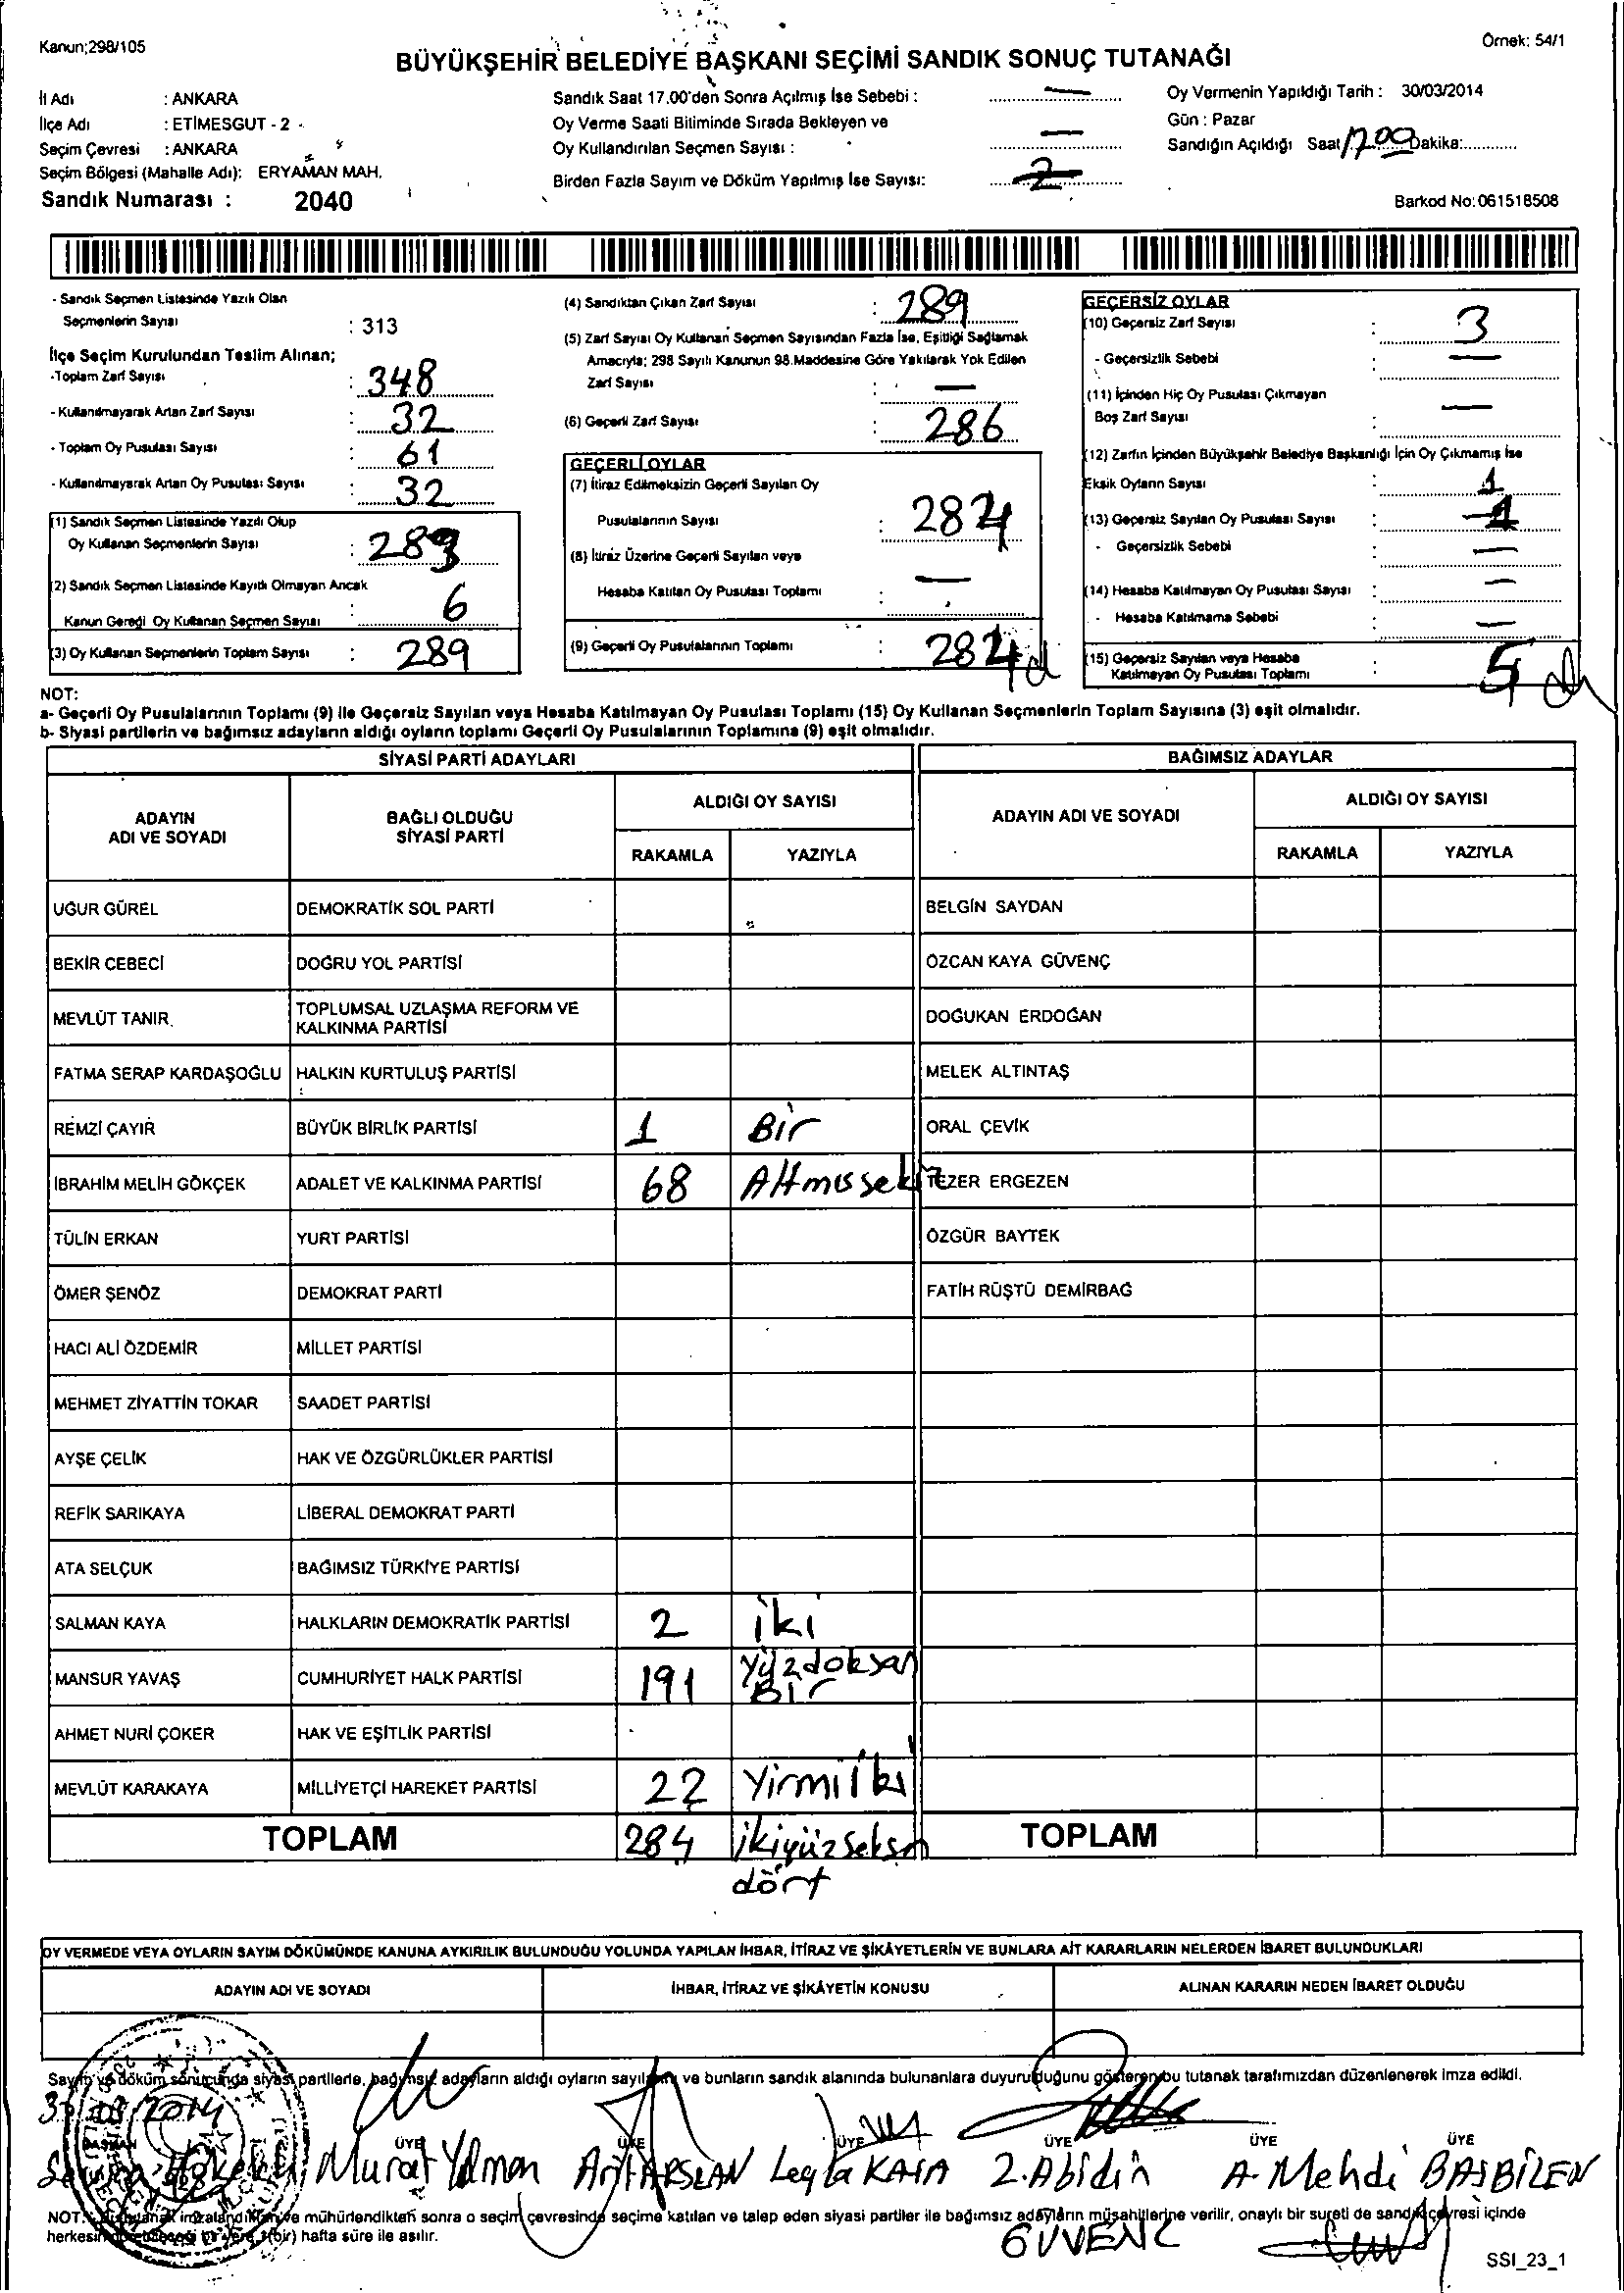 Kanun;298/105
Örnek: 54/1
BÜYÜKŞEHİR BELEDİYE BAŞKANI SEÇİMİ SANDIK SONUÇ TUTANAĞI
İl Adı : ANKARA
İlçe Adı : ETİMESGUT - 2
Seçim Çevresi : ANKARA
Seçim Bölgesi (Mahalle Adı): ERYAMAN MAH.
Sandık Numarası : 2040
Sandık Saat 17.00'den Sonra Açılmış İse Sebebi : —
Oy Verme Saati Bitiminde Sırada Bekleyen ve
Oy Kullandırılan Seçmen Sayısı : —
Birden Fazla Sayım ve Döküm Yapılmış İse Sayısı: 2
Oy Vermenin Yapıldığı Tarih : 30/03/2014
Gün : Pazar
Sandığın Açıldığı Saat 17.00 Dakika:
Barkod No:061518508
- Sandık Seçmen Listesinde Yazılı Olan
Seçmenlerin Sayısı : 313
İlçe Seçim Kurulundan Teslim Alınan;
-Toplam Zarf Sayısı : 348
- Kullanılmayarak Artan Zarf Sayısı 32
- Toplam Oy Pusulası Sayısı : 61
- Kullanılmayarak Artan Oy Pusulası Sayısı : 32
(1) Sandık Seçmen Listesinde Yazılı Olup
Oy Kullanan Seçmenlerin Sayısı : 283
(2) Sandık Seçmen Listesinde Kayıtlı Olmayan Ancak
Kanun Gereği Oy Kullanan Seçmen Sayısı : 6
(3) Oy Kullanan Seçmenlerin Toplam Sayısı : 289
(4) Sandıktan Çıkan Zarf Sayısı : 289
(5) Zarf Sayısı Oy Kullanan Seçmen Sayısından Fazla İse, Eşitliği Sağlamak
Amacıyla; 298 Sayılı Kanunun 98.Maddesine Göre Yakılarak Yok Edilen
Zarf Sayısı : —
(6) Geçerli Zarf Sayısı : 286
GEÇERLİ OYLAR
(7) İtiraz Edilmeksizin Geçerli Sayılan Oy
Pusulalarının Sayısı : 284
(8) İtiraz Üzerine Geçerli Sayılan veya
Hesaba Katılan Oy Pusulası Toplamı : —
(9) Geçerli Oy Pusulalarının Toplamı : 284
GEÇERSİZ OYLAR
(10) Geçersiz Zarf Sayısı : 3
- Geçersizlik Sebebi : —
(11) İçinden Hiç Oy Pusulası Çıkmayan
Boş Zarf Sayısı : —
(12) Zarfın İçinden Büyükşehir Belediye Başkanlığı İçin Oy Çıkmamış İse
Eksik Oyların Sayısı : 1
(13) Geçersiz Sayılan Oy Pusulası Sayısı : 1
- Geçersizlik Sebebi : —
(14) Hesaba Katılmayan Oy Pusulası Sayısı : —
- Hesaba Katılmama Sebebi : —
(15) Geçersiz Sayılan veya Hesaba
Katılmayan Oy Pusulası Toplamı : 5
NOT:
a- Geçerli Oy Pusulalarının Toplamı (9) ile Geçersiz Sayılan veya Hesaba Katılmayan Oy Pusulası Toplamı (15) Oy Kullanan Seçmenlerin Toplam Sayısına (3) eşit olmalıdır.
b- Siyasi partilerin ve bağımsız adayların aldığı oyların toplamı Geçerli Oy Pusulalarının Toplamına (9) eşit olmalıdır.
SİYASİ PARTİ ADAYLARI
BAĞIMSIZ ADAYLAR
ADAYIN ADI VE SOYADI
BAĞLI OLDUĞU SİYASİ PARTİ
ALDIĞI OY SAYISI
ADAYIN ADI VE SOYADI
ALDIĞI OY SAYISI
RAKAMLA YAZIYLA RAKAMLA YAZIYLA
UĞUR GÜREL DEMOKRATİK SOL PARTİ BELGİN SAYDAN
BEKİR CEBECİ DOĞRU YOL PARTİSİ ÖZCAN KAYA GÜVENÇ
MEVLÜT TANIR TOPLUMSAL UZLAŞMA REFORM VE KALKINMA PARTİSİ DOĞUKAN ERDOĞAN
FATMA SERAP KARDAŞOĞLU HALKIN KURTULUŞ PARTİSİ MELEK ALTINTAŞ
REMZİ ÇAYIR BÜYÜK BİRLİK PARTİSİ 1 Bir ORAL ÇEVİK
İBRAHİM MELİH GÖKÇEK ADALET VE KALKINMA PARTİSİ 68 Altmıssekiz TEZER ERGEZEN
TÜLİN ERKAN YURT PARTİSİ ÖZGÜR BAYTEK
ÖMER ŞENÖZ DEMOKRAT PARTİ FATİH RÜŞTÜ DEMİRBAĞ
HACI ALİ ÖZDEMİR MİLLET PARTİSİ
MEHMET ZİYATTİN TOKAR SAADET PARTİSİ
AYŞE ÇELİK HAK VE ÖZGÜRLÜKLER PARTİSİ
REFİK SARIKAYA LİBERAL DEMOKRAT PARTİ
ATA SELÇUK BAĞIMSIZ TÜRKİYE PARTİSİ
SALMAN KAYA HALKLARIN DEMOKRATİK PARTİSİ 2 iki
MANSUR YAVAŞ CUMHURİYET HALK PARTİSİ 191 Yüzdoksan Bir
AHMET NURİ ÇOKER HAK VE EŞİTLİK PARTİSİ
MEVLÜT KARAKAYA MİLLİYETÇİ HAREKET PARTİSİ 22 Yirmiiki
TOPLAM 284 ikiyüzseksen dört TOPLAM
OY VERMEDE VEYA OYLARIN SAYIM DÖKÜMÜNDE KANUNA AYKIRILIK BULUNDUĞU YOLUNDA YAPILAN İHBAR, İTİRAZ VE ŞİKÂYETLERİN VE BUNLARA AİT KARARLARIN NELERDEN İBARET BULUNDUKLARI
ADAYIN ADI VE SOYADI İHBAR, İTİRAZ VE ŞİKÂYETİN KONUSU ALINAN KARARIN NEDEN İBARET OLDUĞU
Sayım ve döküm sonucunda siyasi partilerle, bağımsız adayların aldığı oyların sayılarını ve bunların sandık alanında bulunanlara duyurulduğunu gösteren bu tutanak tarafımızdan düzenlenerek imza edildi.
BAŞKAN ÜYE ÜYE ÜYE ÜYE ÜYE ÜYE
Murat Yılman Arif ARSLAN Leyla KAYA Z.Abidin A. Mehdi BAŞBİLEN
GÜVENÇ
NOT: imzalandıktan ve mühürlendikten sonra o seçim çevresinde seçime katılan ve talep eden siyasi partiler ile bağımsız adayların müşahitlerine verilir, onaylı bir sureti de sandık çevresi içinde
herkesin (bir) hafta süre ile asılır.
SSI_23_1